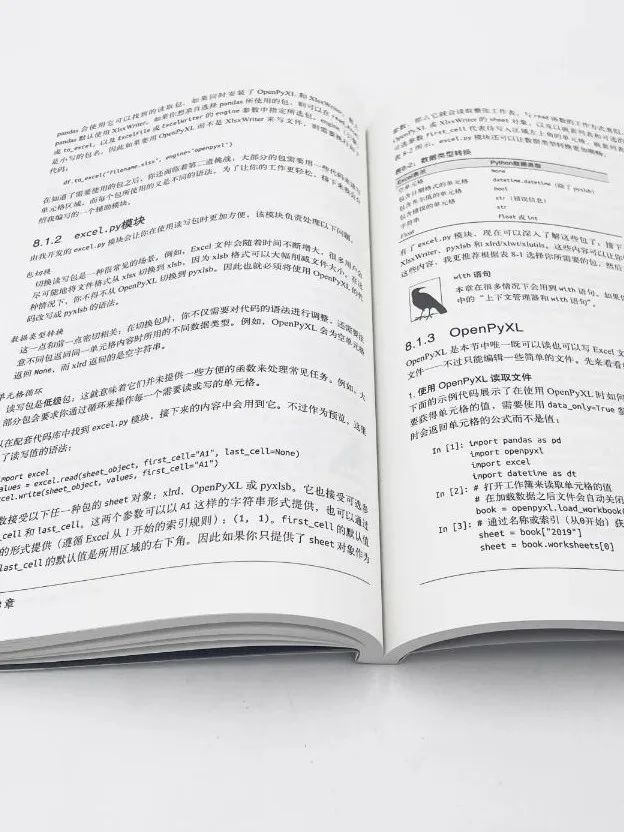 pandas 会使用它可以找到的读取包。如果同时安装了 OpenPyXL 和 XlsxWriter，
pandas 默认使用 XlsxWriter。如果你想亲自选择 pandas 所使用的包，则可以在 read_
或 to_excel，以及 ExcelFile 或 ExcelWriter 的 engine 参数中指定所选包。engine
是小写的包名，因此如果要用 OpenPyXL 而不是 XlsxWriter 来写文件，则需要执行
代码：
df.to_excel("filename.xlsx", engine="openpyxl")
在知道了需要使用的包之后，你还面临着第二道挑战：大部分的包需要用一些代码来读写
单元格区域，而每个包所使用的又是不同的语法。为了让你的工作更轻松，接下来我会介
绍我编写的一个辅助模块。
8.1.2 excel.py模块
由我开发的 excel.py 模块会让你在使用读写包时更加方便，该模块负责处理以下问题。
包切换
切换读写包是一种很常见的场景。例如，Excel 文件会随着时间不断增大，很多用户会
尽可能地将文件格式从 xlsx 切换到 xlsb，因为 xlsb 格式可以大幅削减文件大小。在这
种情况下，你不得不从 OpenPyXL 切换到 pyxlsb。因此也就必须将使用 OpenPyXL 的代
码改写成 pyxlsb 的语法。
数据类型转换
这一点和前一点密切相关：在切换包时，你不仅需要对代码的语法进行调整，还需要注
意不同包返回同一单元格内容时所用的不同数据类型。例如，OpenPyXL 会为空单元格
返回 None，而 xlrd 返回的是空字符串。
单元格循环
读写包是低级包：这就意味着它们并未提供一些方便的函数来处理常见任务。例如，大
部分包会要求你通过循环来操作每一个需要读或写的单元格。
以在配套代码库中找到 excel.py 模块，接下来的内容中会用到它。不过作为预览，这里
了读写值的语法：
import excel
values = excel.read(sheet_object, first_cell="A1", last_cell=None)
excel.write(sheet_object, values, first_cell="A1")
数接受以下任一种包的 sheet 对象：xlrd、OpenPyXL 或 pyxlsb。它也接受可选参
_cell 和 last_cell。这两个参数可以以 A1 这样的字符串形式提供，也可以通过
的形式提供（遵循 Excel 从 1 开始的索引规则）：(1, 1)。first_cell 的默认值
last_cell 的默认值是所用区域的右下角。因此如果你只提供了 sheet 对象作为
章
参数，那么它就会读取整张工作表。与 read 函数的工作方式类似
OpenPyXL 或 XlsxWriter 的 sheet 对象，以及以嵌套列表
可选参数 first_cell 代表待写入区域左上角的单元格。
表 8-2 所示，excel.py 模块还可以让数据类型转换更加顺畅。
表8-2：数据类型转换
Excel表示 Python数据类型
空单元格 None
包含日期格式的单元格 datetime.datetime（除了 pyxlsb）
包含布尔值的单元格 bool
包含错误的单元格 str（错误信息）
字符串 str
浮点数 float 或 int
有了 excel.py 模块，现在可以深入了解这些包了：接下
XlsxWriter、pyxlsb 和 xlrd/xlwt/xlutils。这些内容可以让你
这些内容，我更推荐根据表 8-1 选择你所需要的包，然后
with 语句
本章在很多情况下会用到 with 语句。如果你
中的“上下文管理器和 with 语句”。
8.1.3 OpenPyXL
OpenPyXL 是本节中唯一既可以读也可以写 Excel 文
文件——不过只能编辑一些简单的文件。先来看看
1. 使用 OpenPyXL 读取文件
下面的示例代码展示了在使用 OpenPyXL 时如何
要获得单元格的值，需要使用 data_only=True
时会返回单元格的公式而不是值：
In [1]: import pandas as pd
import openpyxl
import excel
import datetime as dt
In [2]: # 打开工作簿来读取单元格的值
# 在加载数据之后文件会自动关闭
book = openpyxl.load_workbook(
In [3]: # 通过名称或索引（从0开始）获
sheet = book["2019"]
sheet = book.worksheets[0]